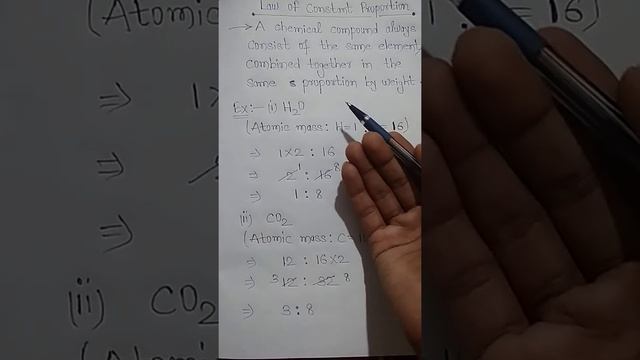 Law of Constant Proportion
→ A chemical compound always
consist of the same element
combined together in the
same s proportion by weight
Ex:- (i) H₂O
(Atomic mass: H=1 = 16)
⇒ 1×2 : 16
⇒ 2 1 : 16 8
⇒ 1 : 8
(ii) CO₂
(Atomic mass: C=
⇒ 12 : 16×2
⇒ 3 12 : 32 8
⇒ 3 : 8